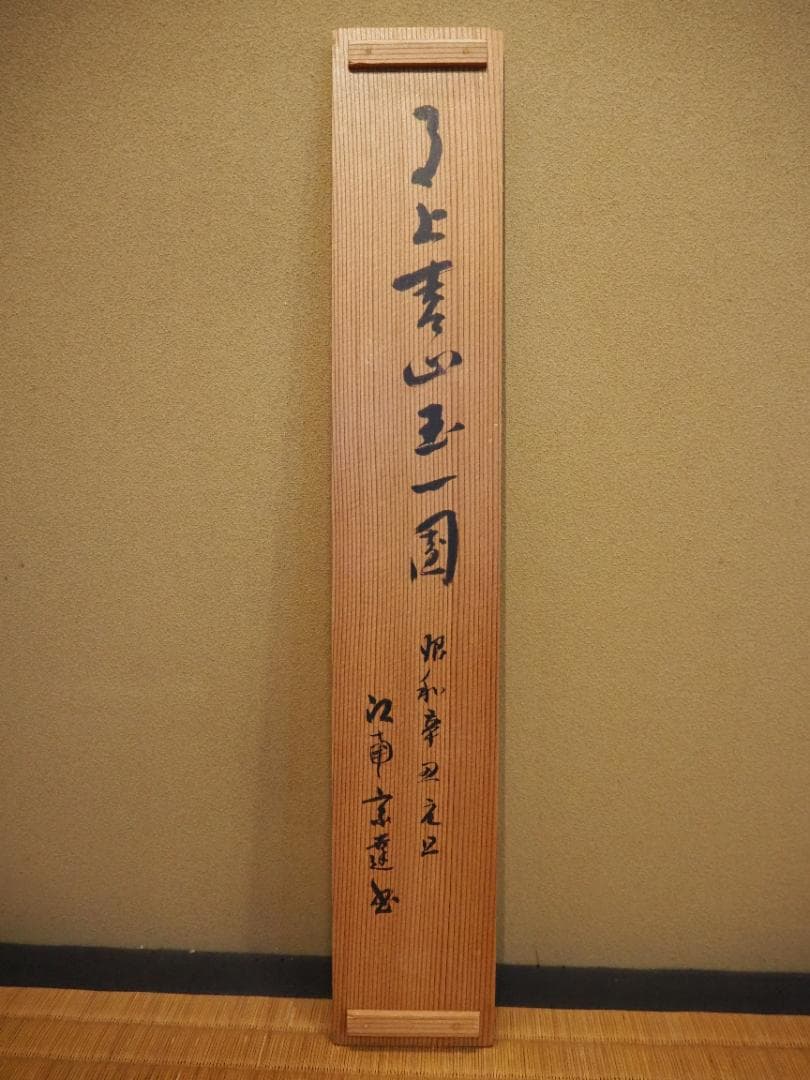 月上青山玉一團
昭和辛丑元旦
江南宗達書